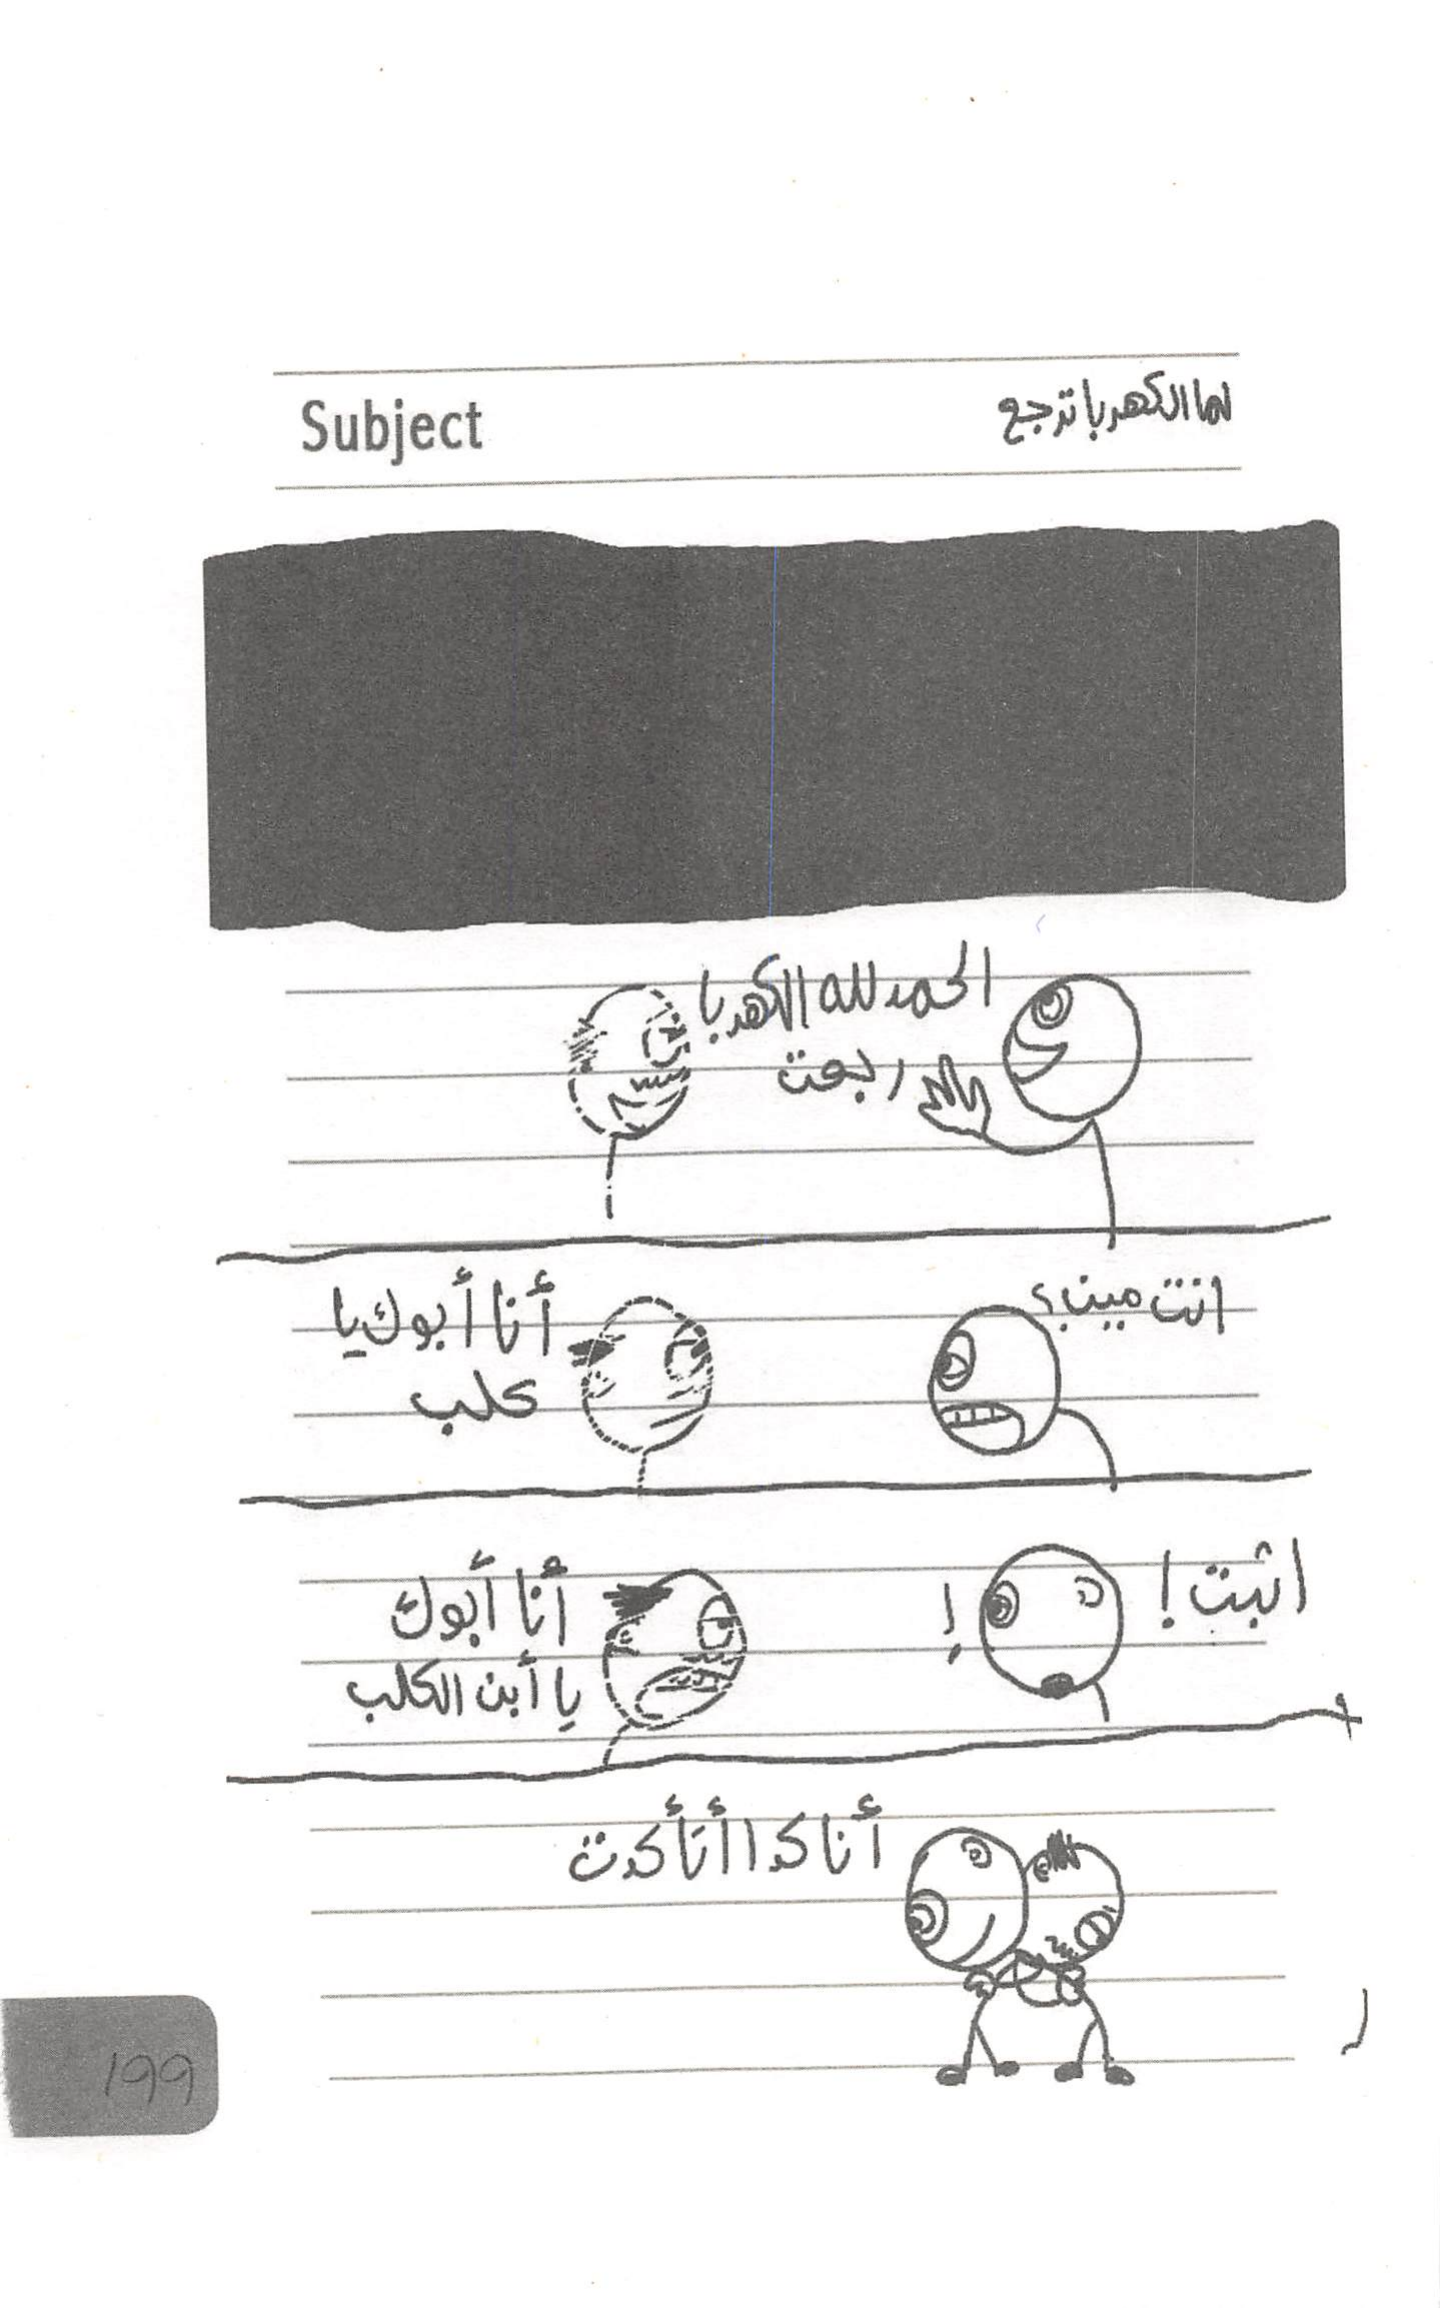 Subject
لما الكهربا ترجع
الحمد لله الكهربا
رجعت
انت مين؟
أنا أبوك يا
كلب
اثبت!
!
أنا أبوك
يا أبن الكلب
أنا كدا أتأكدت
199